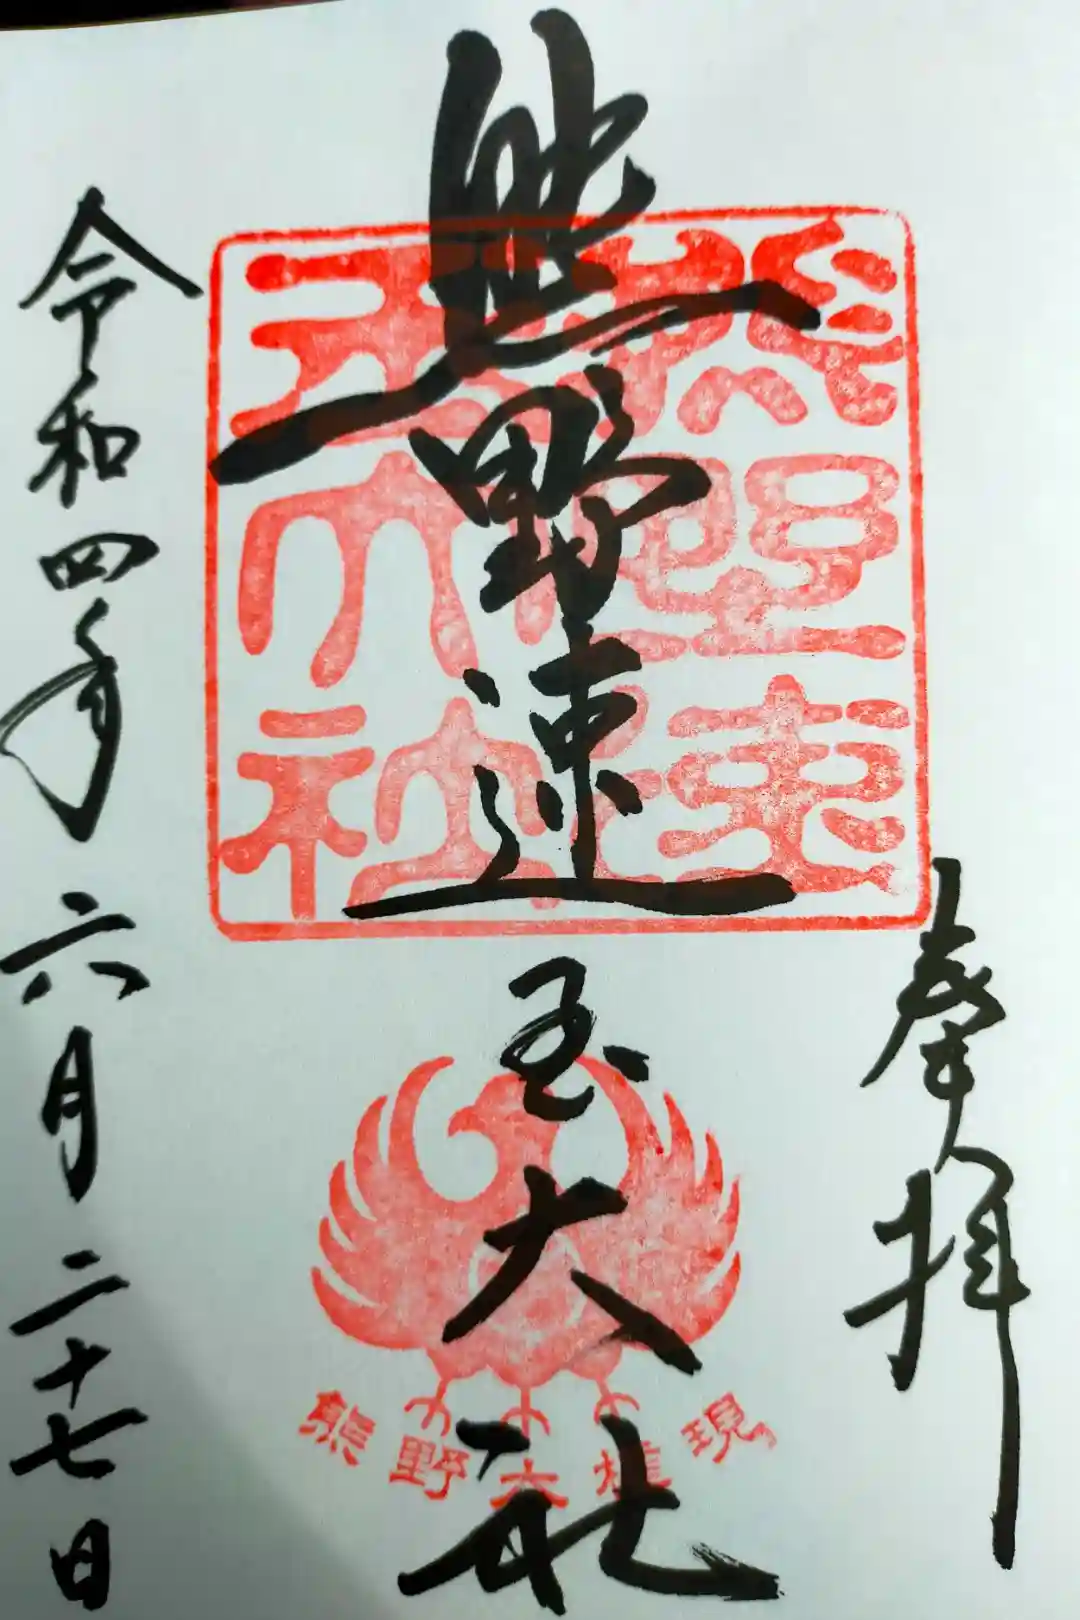 奉拝
熊野速玉大社
熊野速玉大社
熊野大権現
令和四年六月二十七日